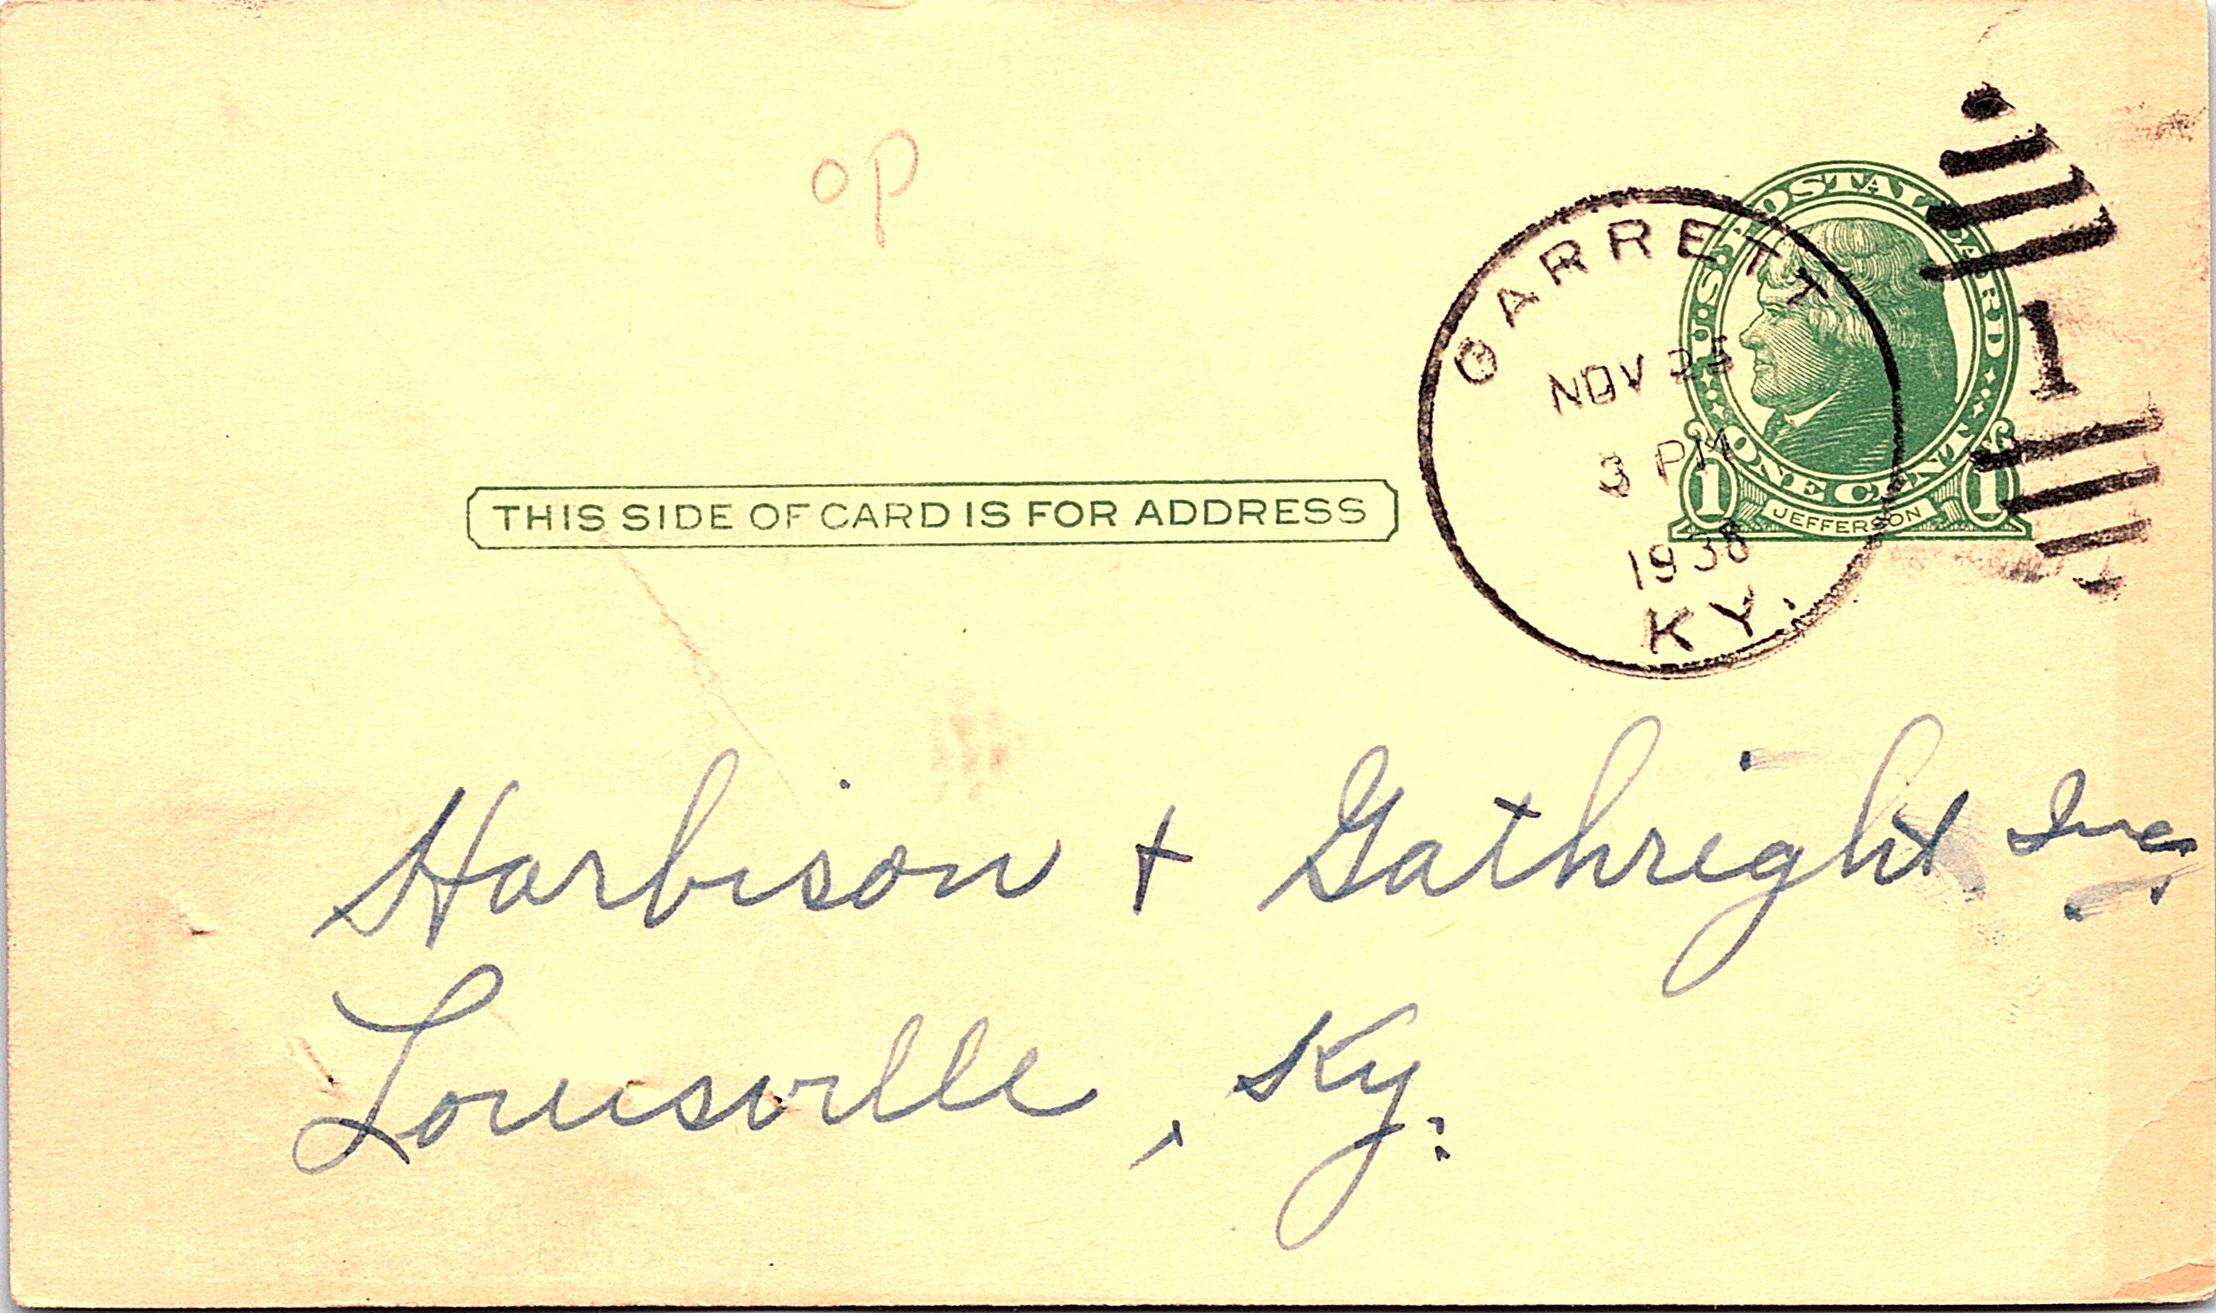 op
U.S. POSTAL CARD
GARRETT
NOV 25
3 PM
1938
KY.
1
ONE CENT
1 1
JEFFERSON
THIS SIDE OF CARD IS FOR ADDRESS
Harbison + Gathright Inc.
Louisville, Ky.